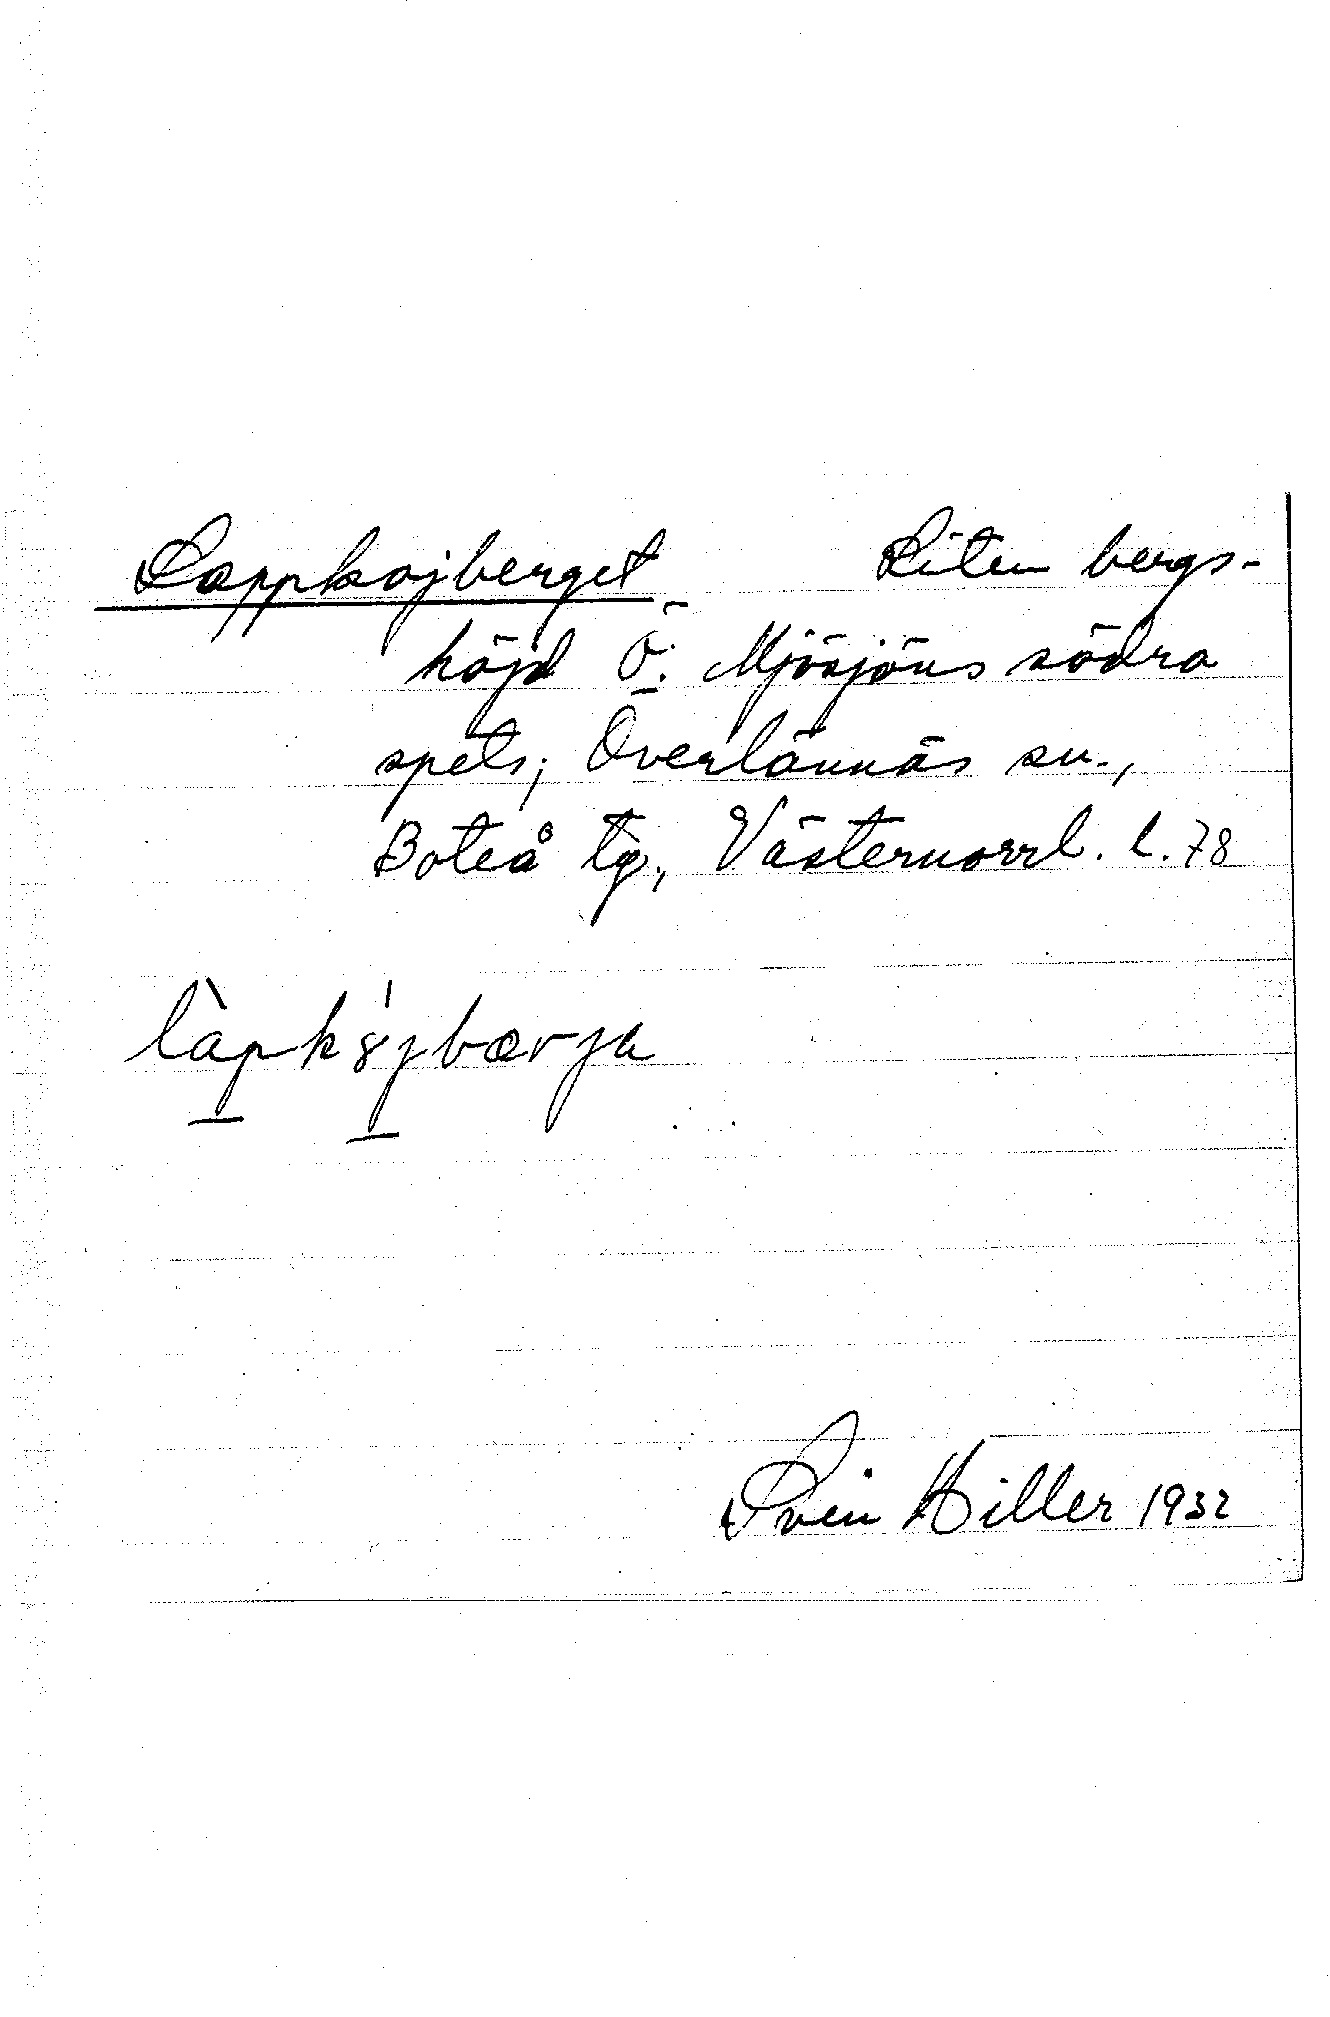 Lappkojberget Liten bergs-
höjd Ö. Mjösjöns södra
spets; Överlännäs sn.,
Boteå tg., Västernorrl. l. 78
làpkȣ́jbærja
Sven Hiller 1932